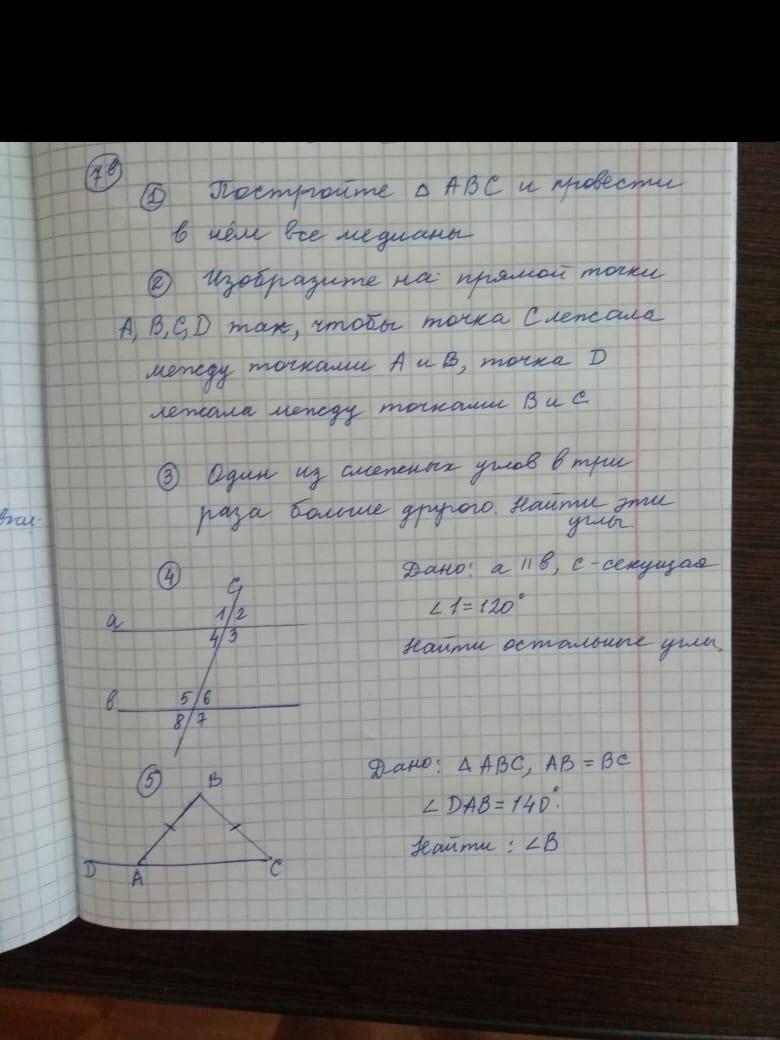 7в
① Постройте △ ABC и провести
в нём все медианы
② Изобразите на прямой точки
A, B, C, D так, чтобы точка C лежала
между точками A и B, точка D
лежала между точками B и C
③ Один из смежных углов в три
раза больше другого. Найти эти
углы.
④
Дано: a || в, c - секущая
∠1 = 120°
Найти остальные углы
C
a
1 2
4 3
в
5 6
8 7
⑤
Дано: △ ABC, AB = BC
∠DAB = 140°.
Найти: ∠B
B
D
A
C